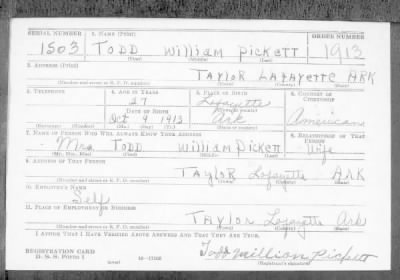 SERIAL NUMBER 1. NAME (Print) ORDER NUMBER
1503 TODD William Pickett 1913
(First) (Middle) (Last)
2. ADDRESS (Print)
TAYLOR LAFAYETTE ARK
(Number and street or R. F. D. number) (Town) (County) (State)
3. TELEPHONE 4. AGE IN YEARS 5. PLACE OF BIRTH 6. COUNTRY OF CITIZENSHIP
27 Lafayette American
DATE OF BIRTH (Town or county)
Oct 9 1913 Ark
(Mo.) (Day) (Yr.) (State or country)
7. NAME OF PERSON WHO WILL ALWAYS KNOW YOUR ADDRESS 8. RELATIONSHIP OF THAT PERSON
Mrs. TODD William Pickett Wife
(Mr., Mrs., Miss) (First) (Middle) (Last)
9. ADDRESS OF THAT PERSON
TAYLOR Lafayette ARK
(Number and street or R. F. D. number) (Town) (County) (State)
10. EMPLOYER'S NAME
Self
11. PLACE OF EMPLOYMENT OR BUSINESS
Taylor Lafayette Ark
(Number and street or R. F. D. number) (Town) (County) (State)
I AFFIRM THAT I HAVE VERIFIED ABOVE ANSWERS AND THAT THEY ARE TRUE.
REGISTRATION CARD
D. S. S. Form 1 (over) Todd William Pickett
(Registrant's signature)